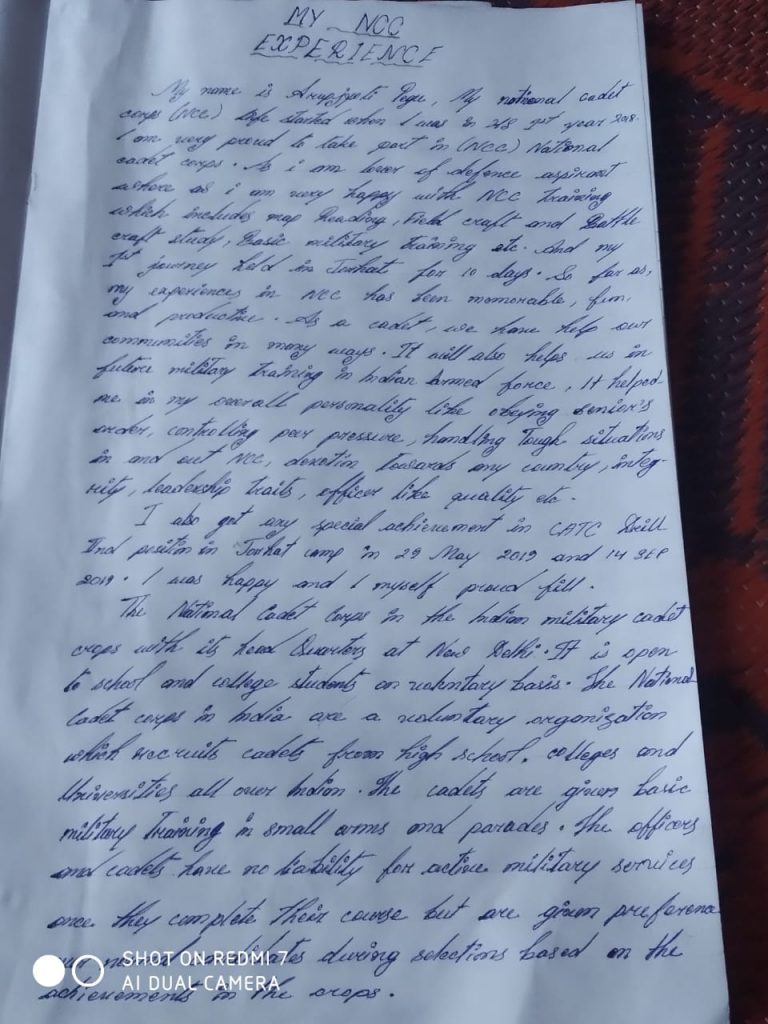 MY NCC
EXPERIENCE
My name is Arupjyoti Pegu, My national cadet
corps (NCC) life started when I was in H.S 1st year 2018.
I am very proud to take part in (NCC) National
cadet corps. As i am lover of defence aspirant
where as i am very happy with NCC training
which includes map Reading, Field craft and Battle
craft study, Basic military training etc. And my
1st journey held in Jorhat for 10 days. So far as,
my experiences in NCC has been memorable, fun,
and productive. As a cadet, we have help our
communities in many ways. It will also helps us in
future military training in Indian Armed force, It helped
me in my overall personality like obeying senior's
order, controlling peer pressure, handling Tough situations
in and out NCC, devotion towards my country, integ-
rity, leadership traits, officer like quality etc.
I also got any special achievement in CATC Drill
IInd position in Jorhat camp in 29 May 2019 and 14 SEP
2019. I was happy and I myself proud fill.
The National Cadet Corps in the Indian military cadet
crops with its head Quarters at New Delhi. It is open
to school and college students on voluntary basis. The National
Cadet corps in India are a voluntary organization
which recruits cadets from high school, colleges and
Universities all over Indian. The cadets are given basic
military Training in small arms and parades. The officers
and cadets have no liability for active military services
once they complete their course but are given preference
during selections based on the
achievements in the crops.
SHOT ON REDMI 7
AI DUAL CAMERA